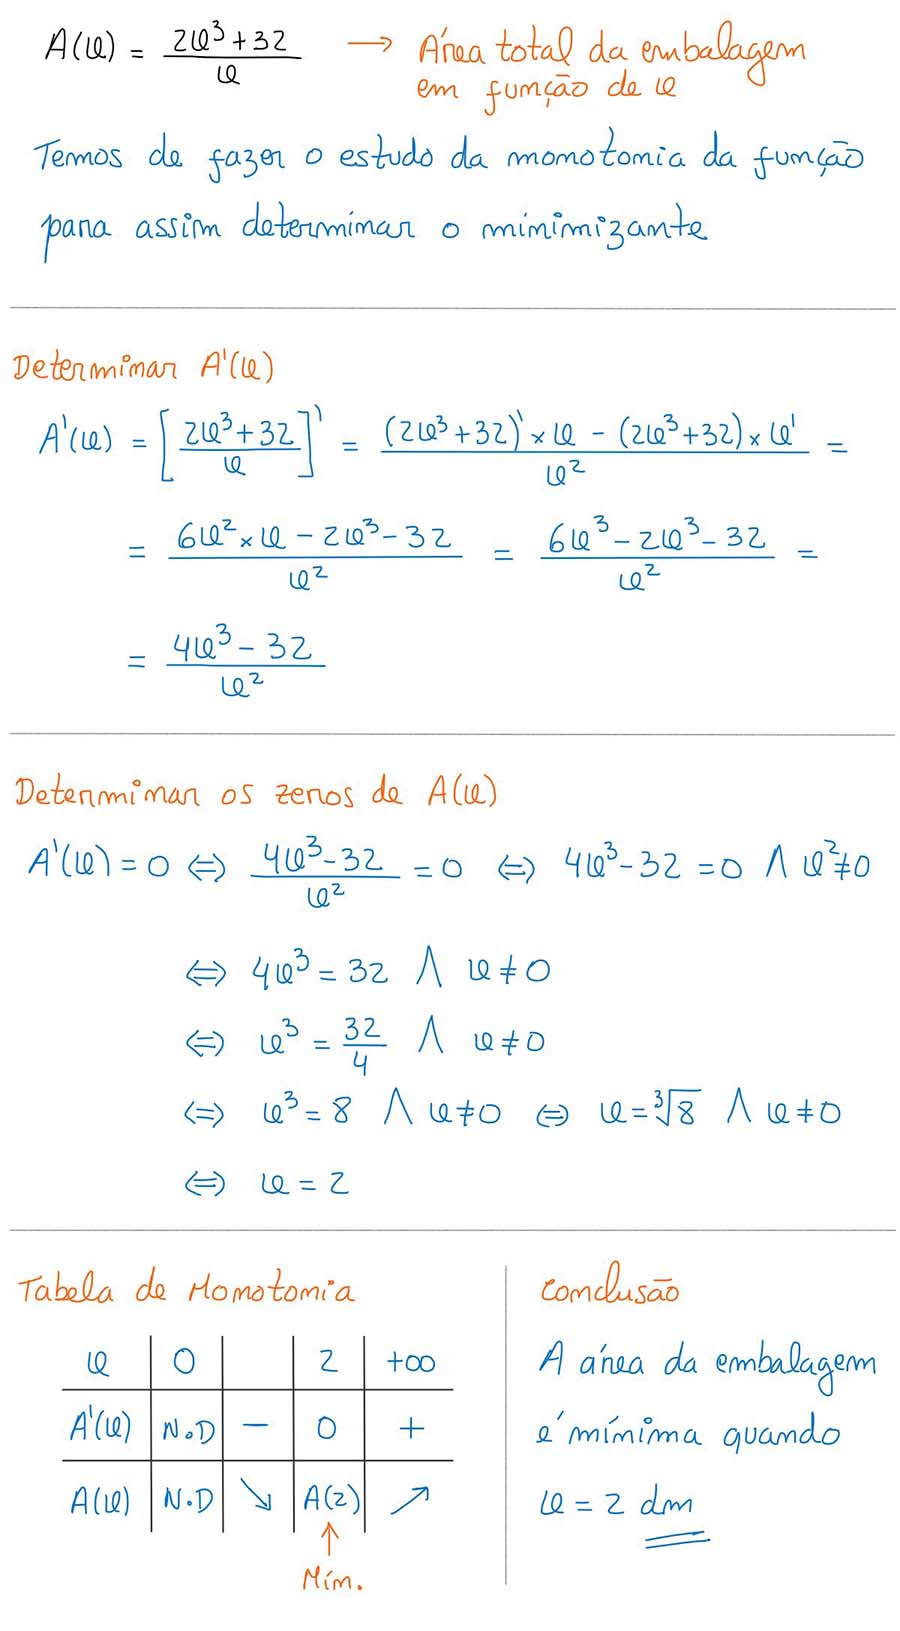 A(x) = (2x³+32)/x → Área total da embalagem
em função de x
Temos de fazer o estudo da monotonia da função
para assim determinar o minimizante
Determinar A'(x)
A'(x) = [(2x³+32)/x]' = ((2x³+32)' × x − (2x³+32) × x')/x² =
= (6x² × x − 2x³ − 32)/x² = (6x³ − 2x³ − 32)/x² =
= (4x³ − 32)/x²
Determinar os zeros de A(x)
A'(x) = 0 ⇔ (4x³−32)/x² = 0 ⇔ 4x³−32 = 0 ∧ x²≠0
⇔ 4x³ = 32 ∧ x ≠ 0
⇔ x³ = 32/4 ∧ x ≠ 0
⇔ x³ = 8 ∧ x ≠ 0 ⇔ x = ³√8 ∧ x ≠ 0
⇔ x = 2
Tabela de Monotonia
x 0 2 +∞
A'(x) N.D − 0 +
A(x) N.D ↘ A(2) ↗
↑
Mín.
Conclusão
A área da embalagem
é mínima quando
x = 2 dm